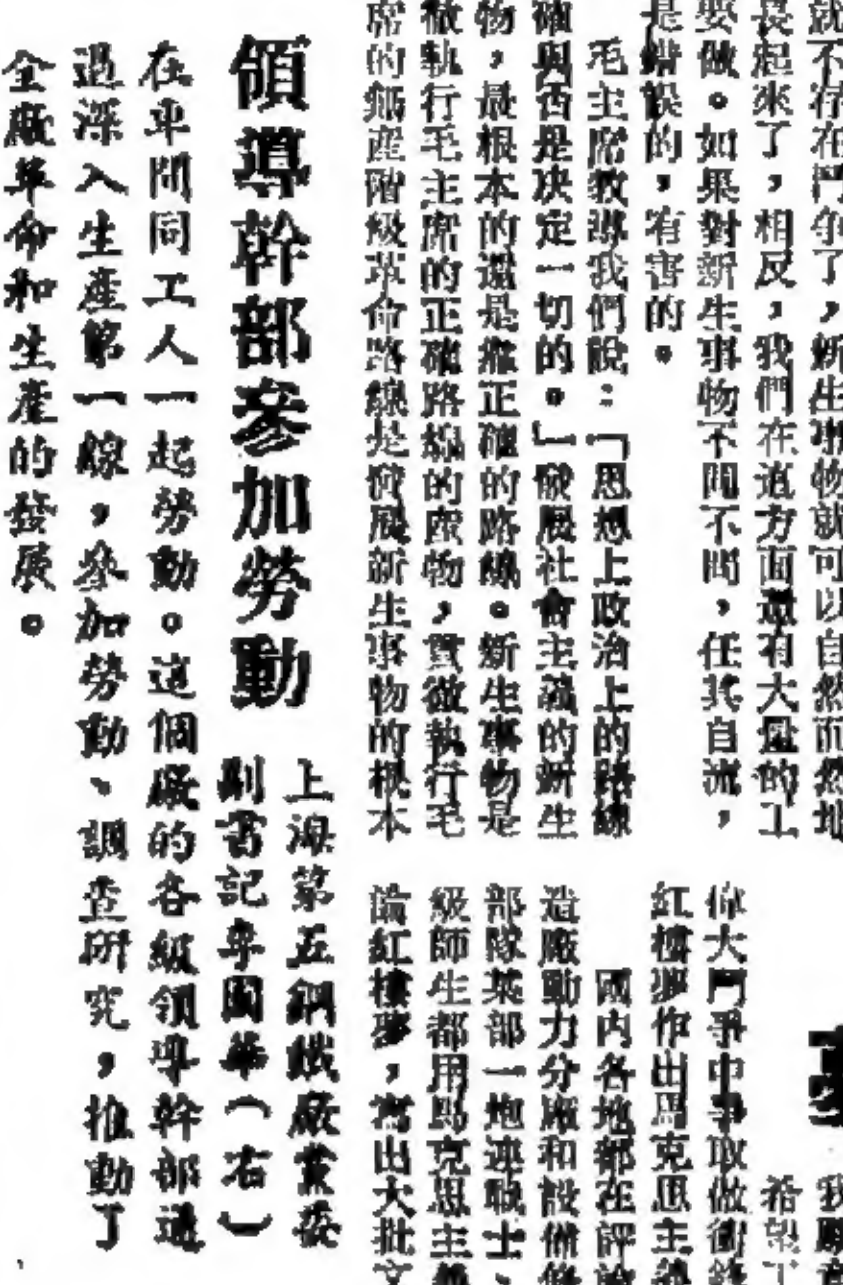 就不存在鬥爭了，新生事物就可以自然而然地
長起來了，相反，我們在這方面還有大量的工
要做。如果對新生事物不聞不問，任其自流，
是錯誤的，有害的。
毛主席教導我們說：「思想上政治上的路線
確與否是決定一切的。」發展社會主義的新生
物，最根本的還是靠正確的路線。新生事物是
徹執行毛主席的正確路線的產物，貫徹執行毛
席的無產階級革命路線是發展新生事物的根本
領導幹部參加勞動
上海第五鋼鐵廠黨委
副書記李國華（右）
在車間同工人一起勞動。這個廠的各級領導幹部通
過深入生產第一線，參加勞動、調查研究，推動了
全廠革命和生產的發展。
希望
偉大鬥爭中爭取做衝鋒
紅樓夢作出馬克思主義
國內各地都在評論
造廠動力分廠和設備修
部隊某部一炮連戰士、
級師生都用馬克思主義
論紅樓夢，寫出大批文